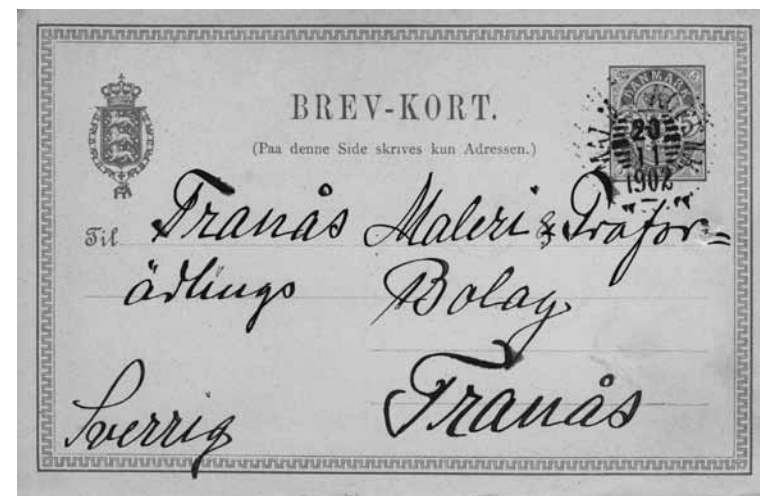 BREV-KORT.
(Paa denne Side skrives kun Adressen.)
DANMARK
5
20
11
1902
Til Tranås Maleri & Träför=
ädlings Bolag
Tranås
Sverrig